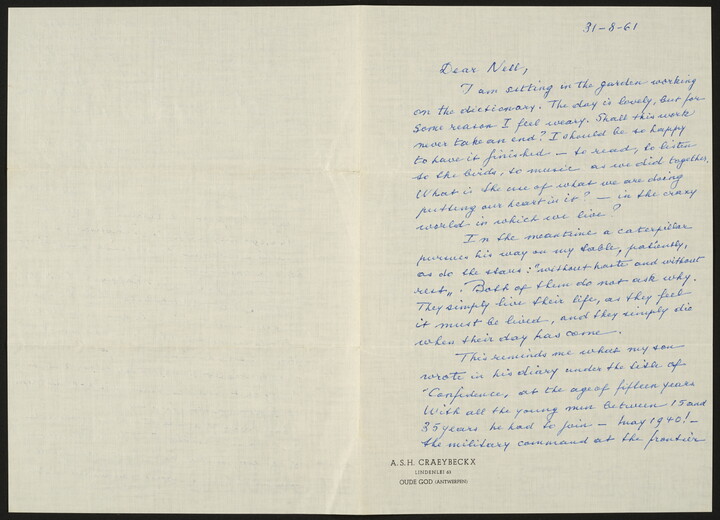 31-8-61
Dear Nell,
I am sitting in the garden working
on the dictionary. The day is lovely, but for
some reason I feel weary. Shall this work
never take an end? I should be so happy
to have it finished — to read, to listen
to the birds, to music as we did together.
What is the use of what we are doing
putting our heart in it? — in the crazy
world in which we live?
In the meantime a caterpillar
pursues his way on my table, patiently,
as do the stars: "without haste and without
rest„. Both of them do not ask why.
They simply live their life, as they feel
it must be lived, and they simply die
when their day has come.
This reminds me what my son
wrote in his diary under the title of
"Confidence„ at the age of fifteen years
With all the young men between 15 and
35 years he had to join — May 1940! —
the military command at the frontier
A.S.H. CRAEYBECKX
LINDENLEI 65
OUDE GOD (ANTWERPEN)